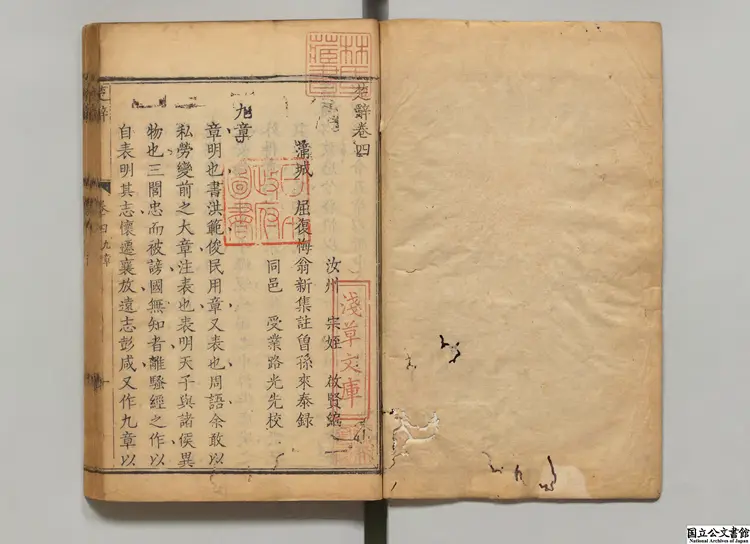 楚辭卷四
汝州　宗姪　啟賢編
蒲城　屈復悔翁新集註曾孫來泰錄
同邑　受業路光先校
九章
章明也書洪範俊民用章又表也周語余敢以
私勞變前之大章注表也表明天子與諸侯異
物也三閭忠而被謗國無知者離騷經之作以
自表明其志懷遷襄放遠志彭咸又作九章以
楚辭
卷四九章
一
淺草文庫
圖書
國立公文書館
National Archives of Japan